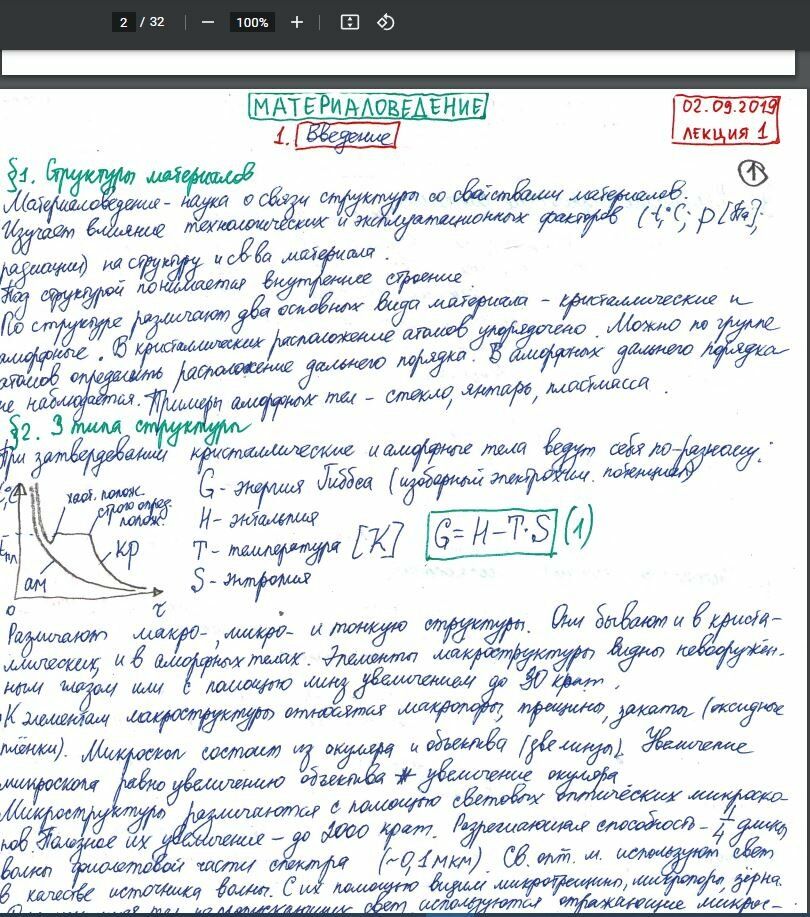 2 / 32 — 100% +
МАТЕРИАЛОВЕДЕНИЕ
1. Введение
02.09.2019
ЛЕКЦИЯ 1
1
§1. Структуры материалов
Материаловедение - наука о связи структуры со свойствами материалов.
Изучает влияние технологических и эксплуатационных факторов (t,°C; p [Па];
радиации) на структуру и св-ва материала.
Под структурой понимается внутреннее строение.
По структуре различают два основных вида материала - кристаллические и
аморфные. В кристаллических расположение атомов упорядочено. Можно по группе
атомов определить расположение дальнего порядка. В аморфных дальнего порядка
не наблюдается. Примеры аморфных тел - стекло, янтарь, пластмасса.
§2. 3 типа структуры
При затвердевании кристаллические и аморфные тела ведут себя по-разному:
хаот. полож.
строго опред.
полож.
ам
кр
0
τ
G - энергия Гиббса (изобарный электрохим. потенциал)
H - энтальпия
T - температура [K]
S - энтропия
G = H - T·S (1)
Различают макро-, микро- и тонкую структуры. Они бывают и в криста-
ллических, и в аморфных телах. Элементы макроструктуры видны невооружён-
ным глазом или с помощью линз увеличением до 30 крат.
К элементам макроструктуры относятся макропоры, трещины, закаты (оксидные
плёнки). Микроскоп состоит из окуляра и объектива (две линзы). Увеличение
микроскопа равно увеличению объектива * увеличение окуляра
Микроструктуры различаются с помощью световых оптических микроско
пов. Полезное их увеличение - до 2000 крат. Разрешающая способность - 1/4 длины
волны фиолетовой части спектра (~0,1 мкм). Св. опт. м. используют свет
в качестве источника волны. С их помощью видим микротрещины, микропоры, зёрна.
свет используются отражающие микрос-